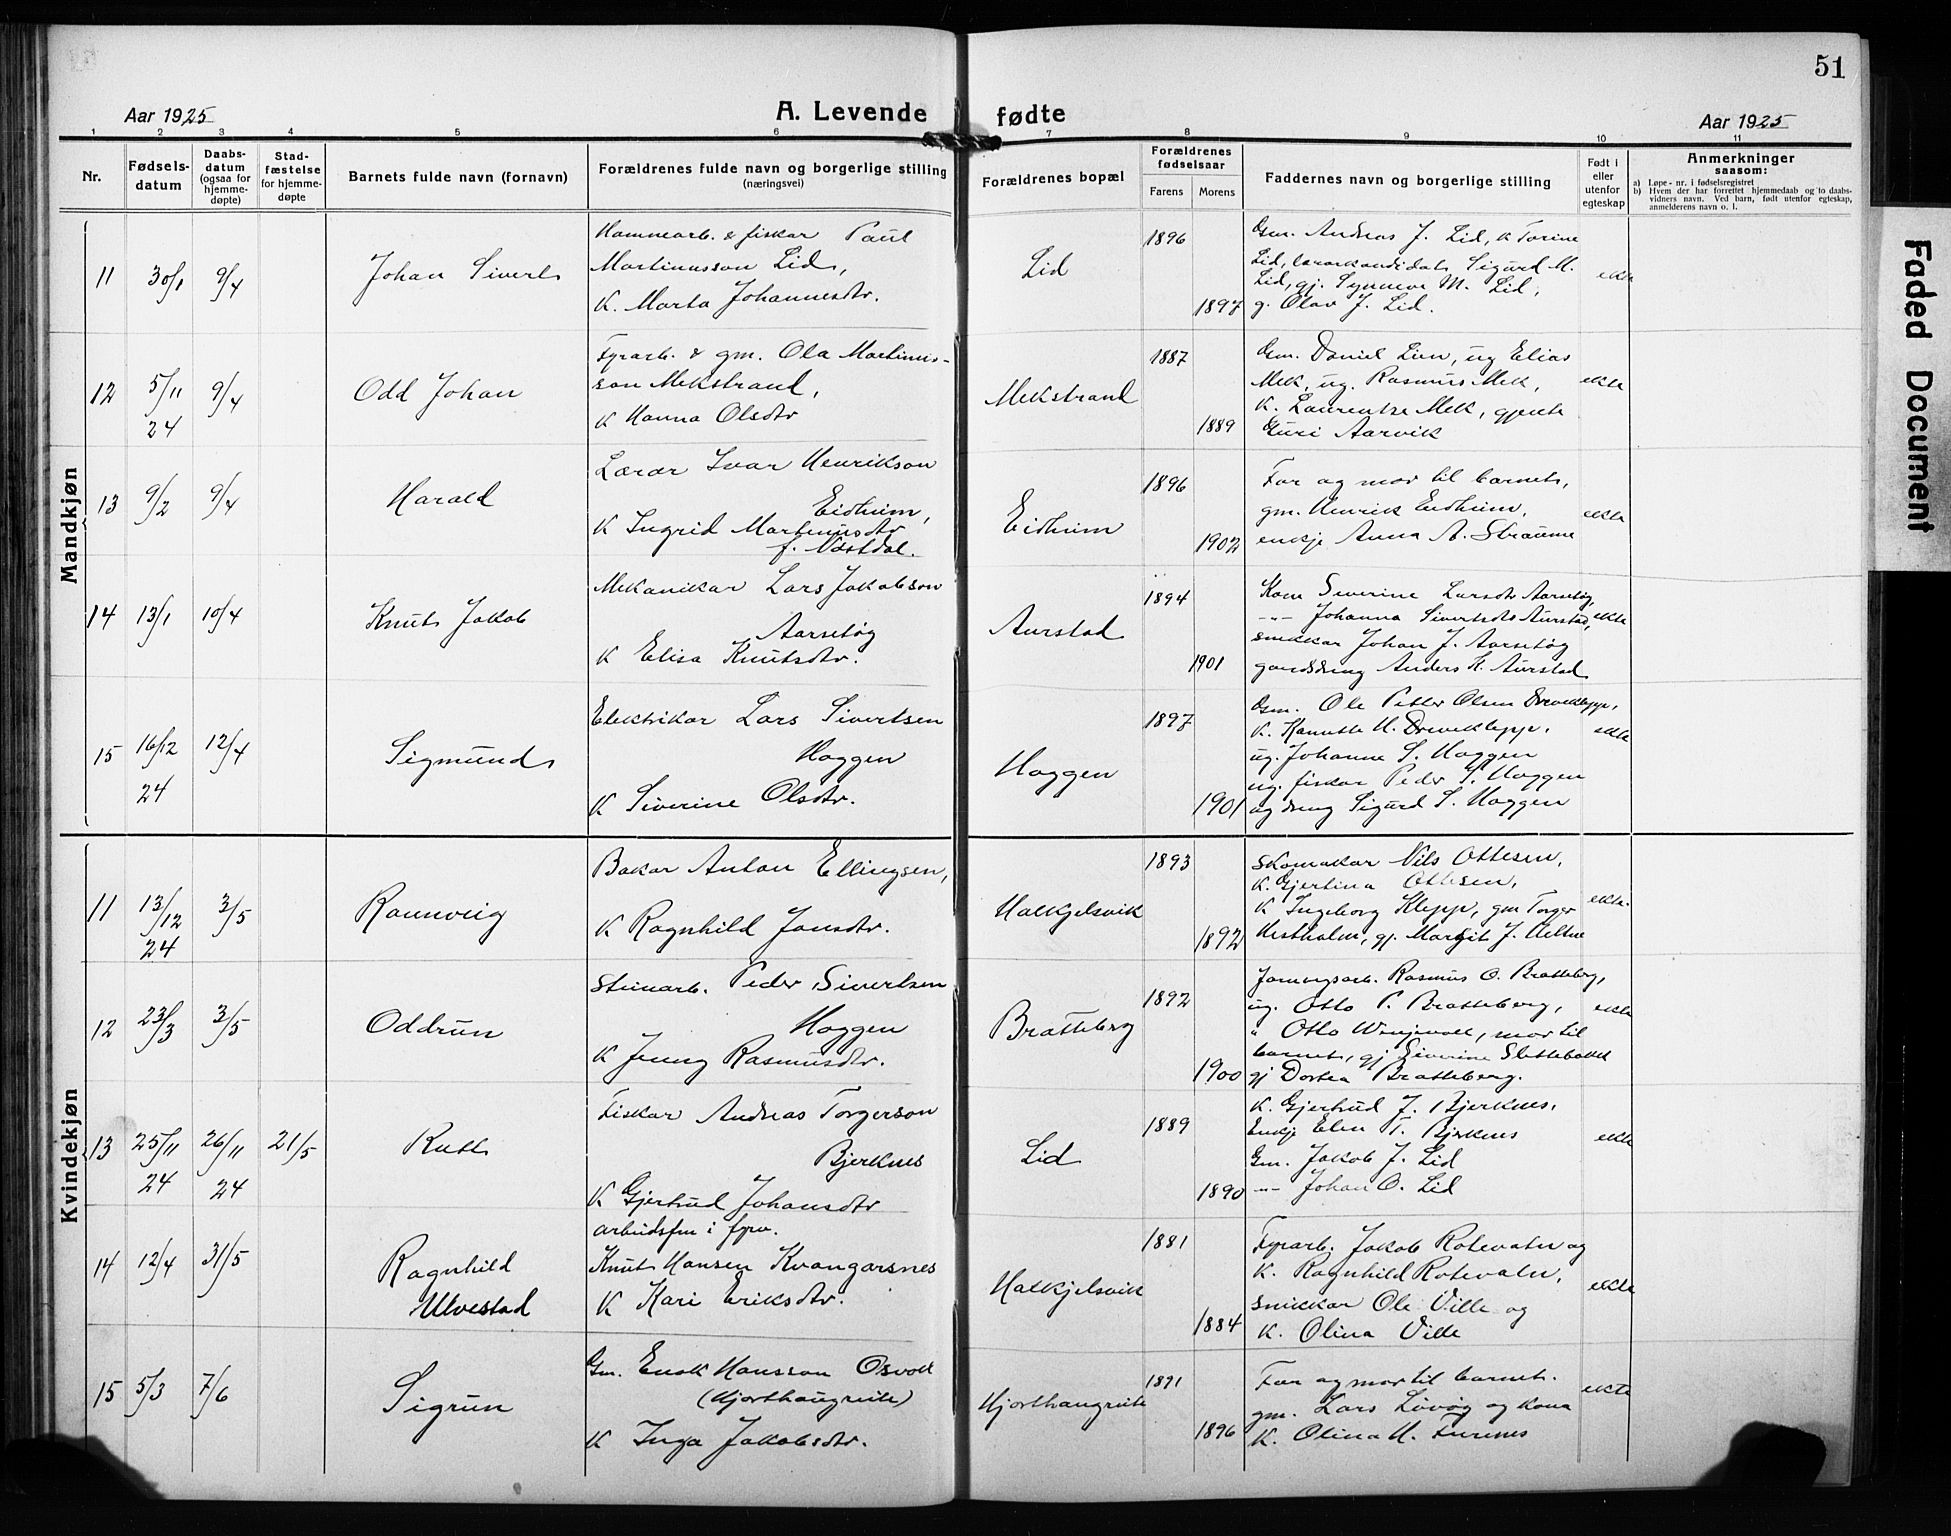 51
Aar 1925
A. Levende fødte
Aar 1925
1 2 3 4 5 6 7 8 9 10 11
Nr.
Fødsels-
datum
Daabs-
datum
(ogsaa for
hjemme-
døpte)
Stad-
fæstelse
for hjemme-
døpte
Barnets fulde navn (fornavn)
Forældrenes fulde navn og borgerlige stilling
(næringsvei)
Forældrenes bopæl
Forældrenes
fødselsaar
Farens Morens
Faddernes navn og borgerlige stilling
Født i
eller
utenfor
egteskap
Anmerkninger
saasom:
a) Løpe-nr. i fødselsregistret
b) Hvem der har forrettet hjemmedaab og to daabs-
vidners navn. Ved barn, født utenfor egteskap,
anmelderens navn o. l.
Mandkjøn
11 30/1 9/4 Johan Sivert
Hamnearb. & fiskar Paul
Martinusson Lid,
K. Marta Johannesdtr.
Lid
1896
1897
Gm. Andreas J. Lid, K Torine
Lid, lærarkandidat Sigurd M.
Lid, gj. Synneve M. Lid,
g. Olav J. Lid.
ekte
12 5/11 24 9/4 Odd Johan
Fyrarb. & gm. Ola Martinus-
son Mekstrand,
K Hanna Olsdtr
Mekstrand
1887
1889
Gm. Daniel Lien, ug Elias
Mek, ug. Rasmus Mek,
K. Laurentse Mek, gjente
Guri Aarvik
ekte
13 9/2 9/4 Harald
Lærar Ivar Henrikson
Eidheim,
K Ingrid Martinusdtr
f. Næstdal.
Eidheim
1896
1902
Far og mor til barnet,
gm. Henrik Eidheim,
enkje Anna A. Straume
ekte
14 13/1 10/4 Knut Jakob
Mekanikar Lars Jakobson
Aarsetøg
K Elisa Knutsdtr.
Aurstad
1894
1901
Kone Severine Larsdtr Aarsetøg,
-"- Johanna Sivertsdtr Aurstad,
snikkar Johan J. Aarsetøg
gardsdreng Anders K. Aurstad
ekte
15 16/12 24 12/4 Sigmund
Elektrikar Lars Sivertsen
Hoggen
K Siverine Olsdtr.
Hoggen
1897
1901
Gm. Ole Petter Olsen Dreveklepp,
K. Hanutte H. Dreveklepp,
ug. Johanne S. Hoggen
ug. fiskar Peder S. Hoggen
og dreng Sigurd S. Hoggen
ekte
Kvindekjøn
11 13/12 24 3/5 Rannveig
Bakar Anton Ellingsen,
K Ragnhild Jonsdtr.
Halkjelsvik
1893
1892
Skomakar Nils Ottesen,
K. Gjertina Ottesen,
K Ingeborg Klepp, gm Torger
Westholm, gj. Margit J. Aeltne
ekte.
12 23/3 3/5 Oddrun
Steinarb. Peder Sivertsen
Hoggen
K Jenny Rasmusdtr.
Bratteberg
1892
1900
Jarnvegsarb. Rasmus O. Bratteberg,
ug. Otto P. Bratteberg,
" Otto Wenjevoll, mor til
barnet, gj Siverine Slettebakk
gj Dortea Bratteberg.
ekte
13 25/11 24 26/11 24 21/5 Rutt
Fiskar Andreas Torgerson
Bjerknes
K Gjertrud Johansdtr
Lid
1889
1890
K. Gjertrud J. Bjerknes,
Enkje Elen T. Bjerknes
Gm. Jakob J. Lid
-"- Johan O. Lid
ekte
14 12/4 31/5 Ragnhild
Ulvestad
arbeidsfm i fyrv.
Knut Hansen Kvangarsnes
K Kari Eriksdtr.
Halkjelsvik
1881
1884
Fyrarb. Jakob Rotevatn og
K. Ragnhild Rotevatn,
snikkar Ole Ville og
K. Olina Ville
ekte
15 5/3 7/6 Sigrun
Gm. Enok Hansson Osvoll
(Hjorthaugreite)
K Inga Jakobsdtr.
Hjorthaugreite
1891
1896
Far og mor til barnet.
gm. Lars Løvøg og kona
K. Olina H. Furenes
ekte
Faded Document